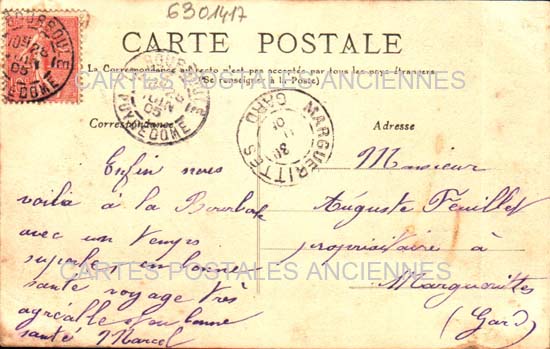 6301417
CARTE POSTALE
La Correspondance au recto n'est pas acceptée par tous les pays étrangers
(Se renseigner à la Poste)
LA BOURBOULE
PUY-DE-DOME
05
MARGUERITTES
GARD
Correspondance
Adresse
Enfin nous
voilà à la Bourboule
avec un temps
superbe en bonne
santé voyage très
agréable et en bonne
santé Marcel
Monsieur
Auguste Feuillet
propriétaire à
Marguerittes
(Gard)
CARTES POSTALES ANCIENNES
CARTES POSTALES ANCIENNES